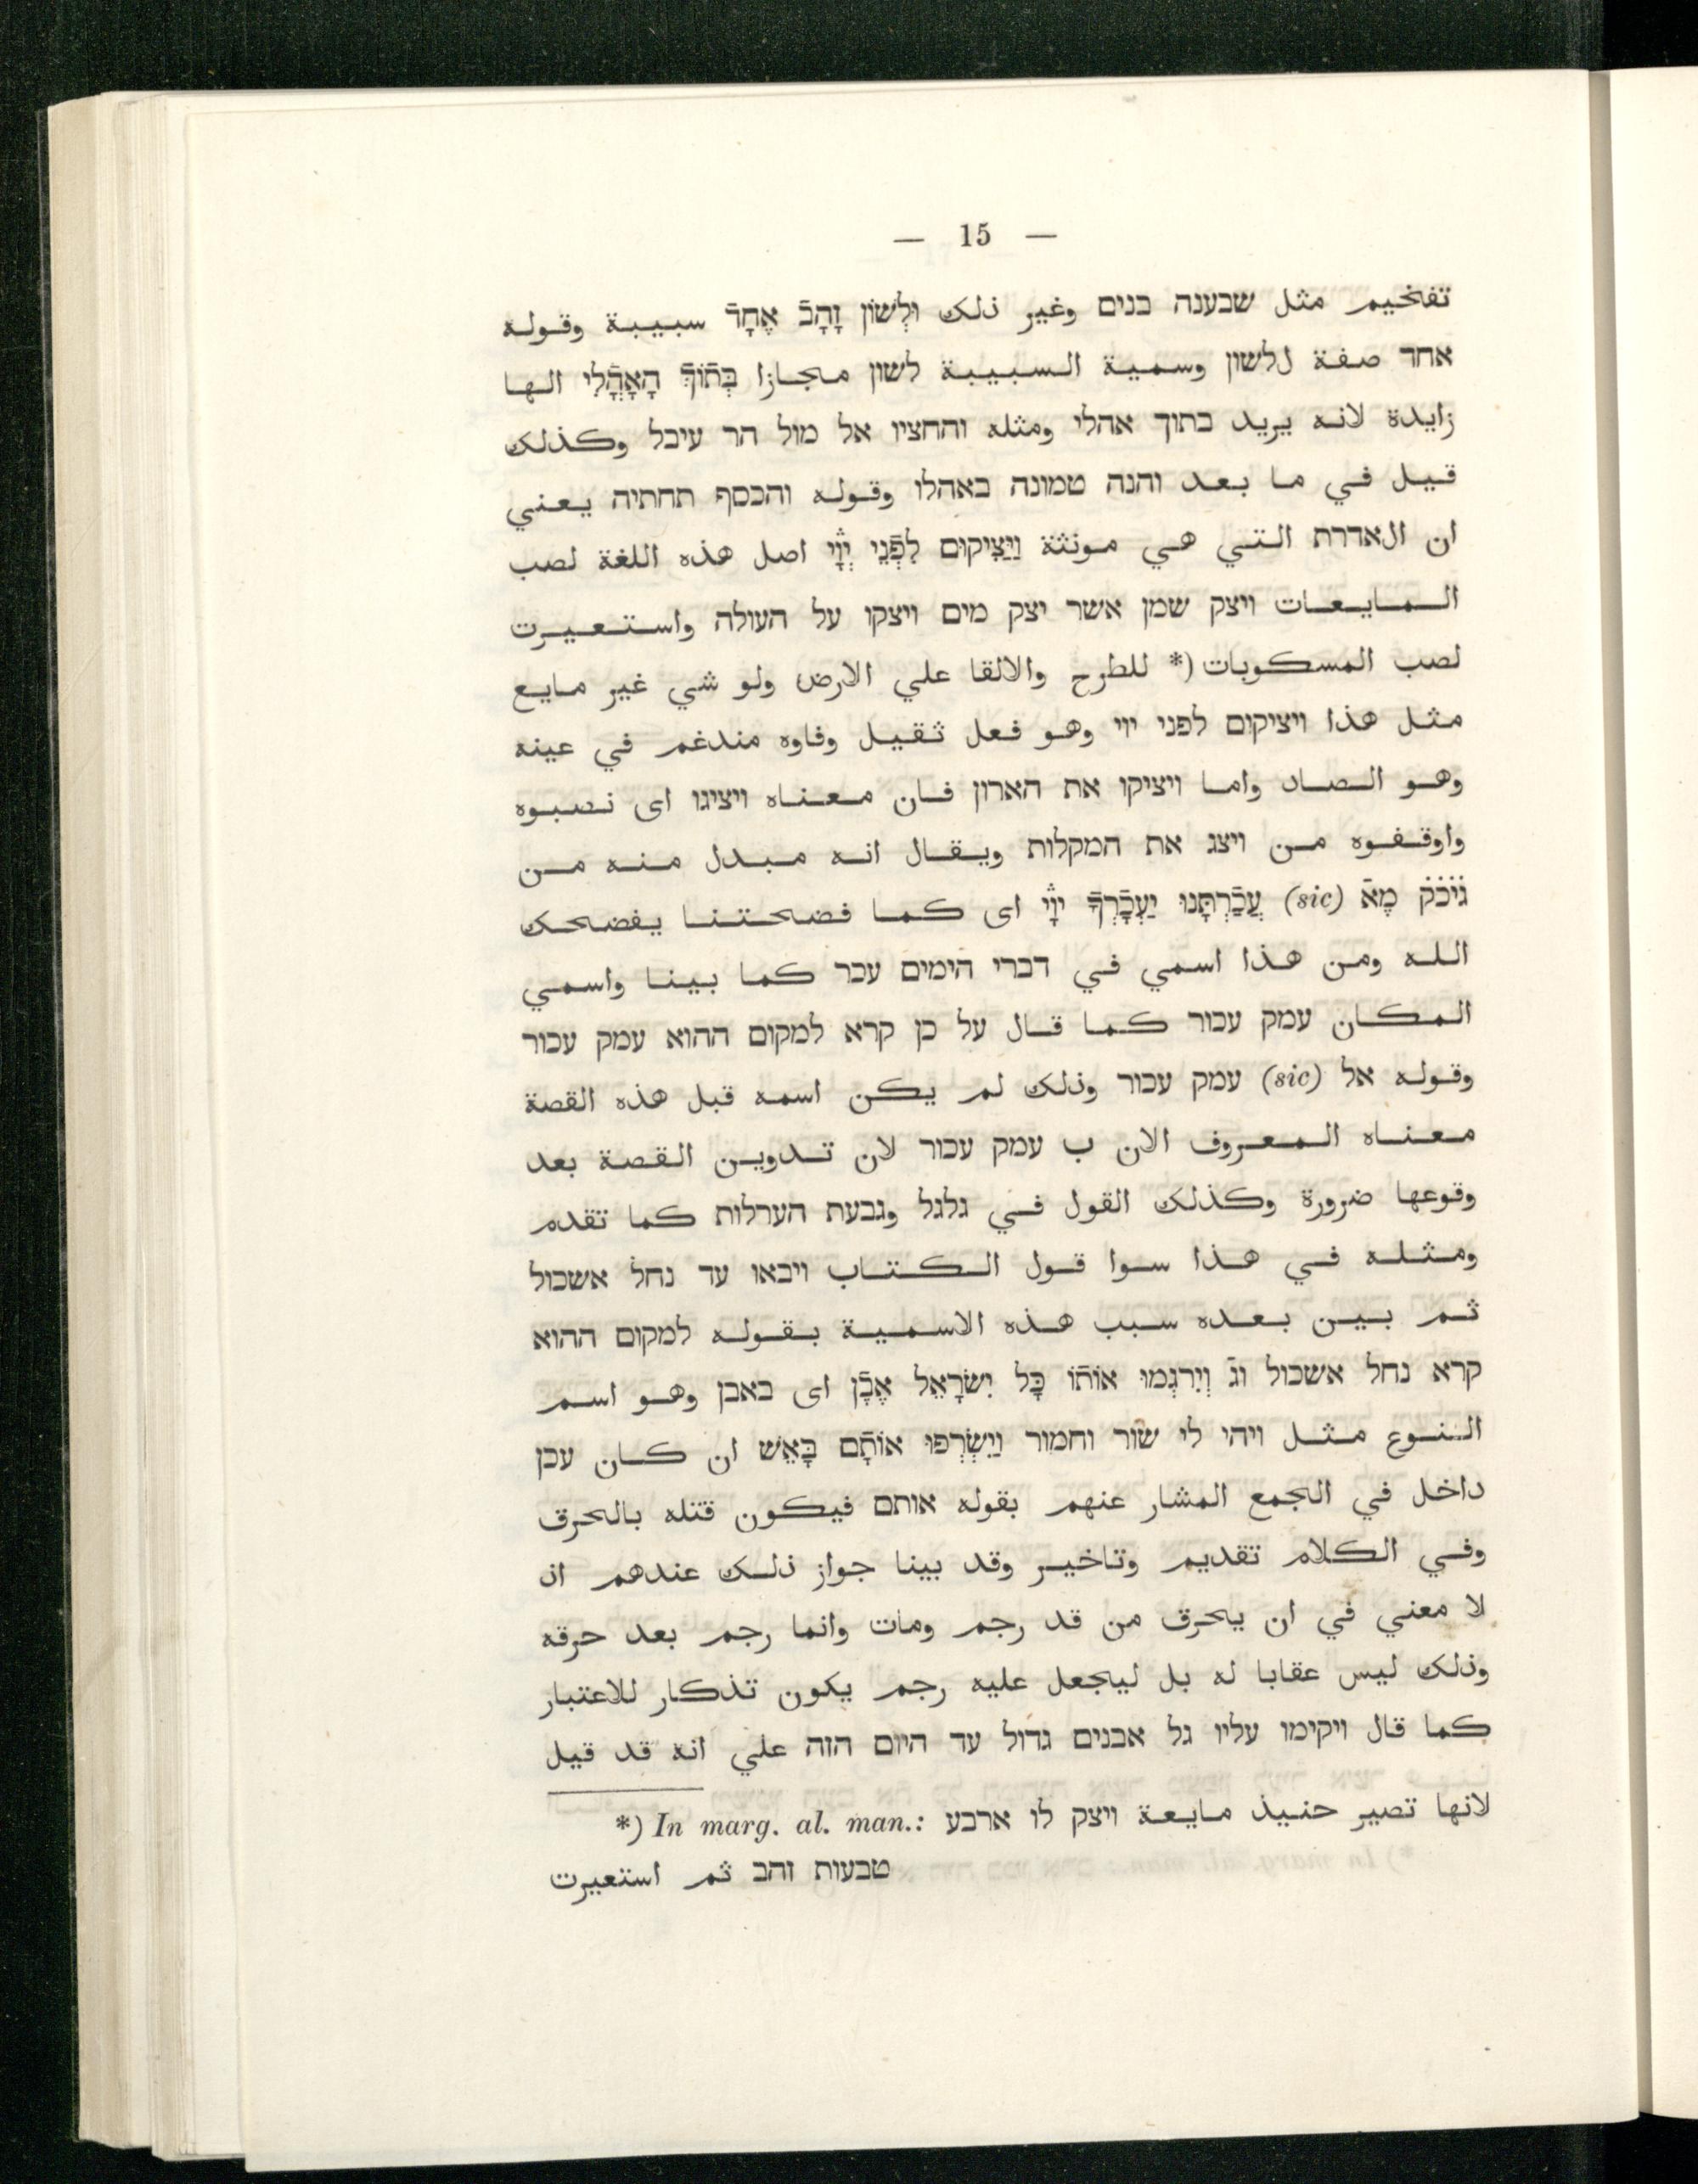 — 15 —
تفخيم مثل שבענה בנים وغير ذلك וּלְשׁוֹן זָהָב אֶחָד سبيبة وقوله
אחד صفة ללשון وسمية السبيبة לשון مجازا בְּתוֹךְ הָאָהֳלִי الها
زايدة لانه يريد בתוך אהלי ومثله והחציו אל מול הר עיבל وكذلك
قيل في ما بعد והנה טמונה באהלו وقوله והכסף תחתיה يعني
ان الאדרת التي هي مونثة וַיַּצִּיקוּם לִפְנֵי יְיָ اصل هذه اللغة لصب
المايعات ויצק שמן אשר יצק מים ויצקו על העולה واستعيرت
لصب المسكوبات (* للطرح والالقا علي الارض ولو شي غير مايع
مثل هذا ויציקום לפני ייי وهو فعل ثقيل وفاوه مندغم في عينه
وهو الصاد واما ויציקו את הארון فان معناه ויציגו اى نصبوه
واوقفوه من ויצג את המקלות ويقال انه مبدل منه من
גיכק מֶא (sic) עֲכַרְתָּנוּ יַעְכָּרְךָ יְיָ اى كما فضحتنا يفضحك
الله ومن هذا اسمي في דברי הימים עכר كما بينا واسمي
المكان עמק עכור كما قال על כן קרא למקום ההוא עמק עכור
وقوله אל (sic) עמק עכור وذلك لم يكن اسمه قبل هذه القصة
معناه المعروف الان ب עמק עכור لان تدوين القصة بعد
وقوعها ضرورة وكذلك القول في גלגל وגבעת הערלות كما تقدم
ومثله في هذا سوا قول الكتاب ויבאו עד נחל אשכול
ثم بين بعده سبب هذه الاسمية بقوله למקום ההוא
קרא נחל אשכול וג וְיִרְגְמוּ אוֹתוֹ כָּל יִשְׂרָאֵל אֶבֶן اى באבן وهو اسم
النوع مثل ויהי לי שור וחמור וַיִּשְׂרְפוּ אוֹתָם בָּאֵשׁ ان كان עכן
داخل في الجمع المشار عنهم بقوله אותם فيكون قتله بالحرق
وفي الكلام تقديم وتاخير وقد بينا جواز ذلك عندهم اذ
لا معني في ان يحرق من قد رجم ومات وانما رجم بعد حرقه
وذلك ليس عقابا له بل ليجعل عليه رجم يكون تذكار للاعتبار
كما قال ויקימו עליו גל אבנים גדול עד היום הזה علي انه قد قيل
*) In marg. al. man.: لانها تصير حنيذ مايعة ויצק לו ארבע
טבעות זהב ثم استعيرت